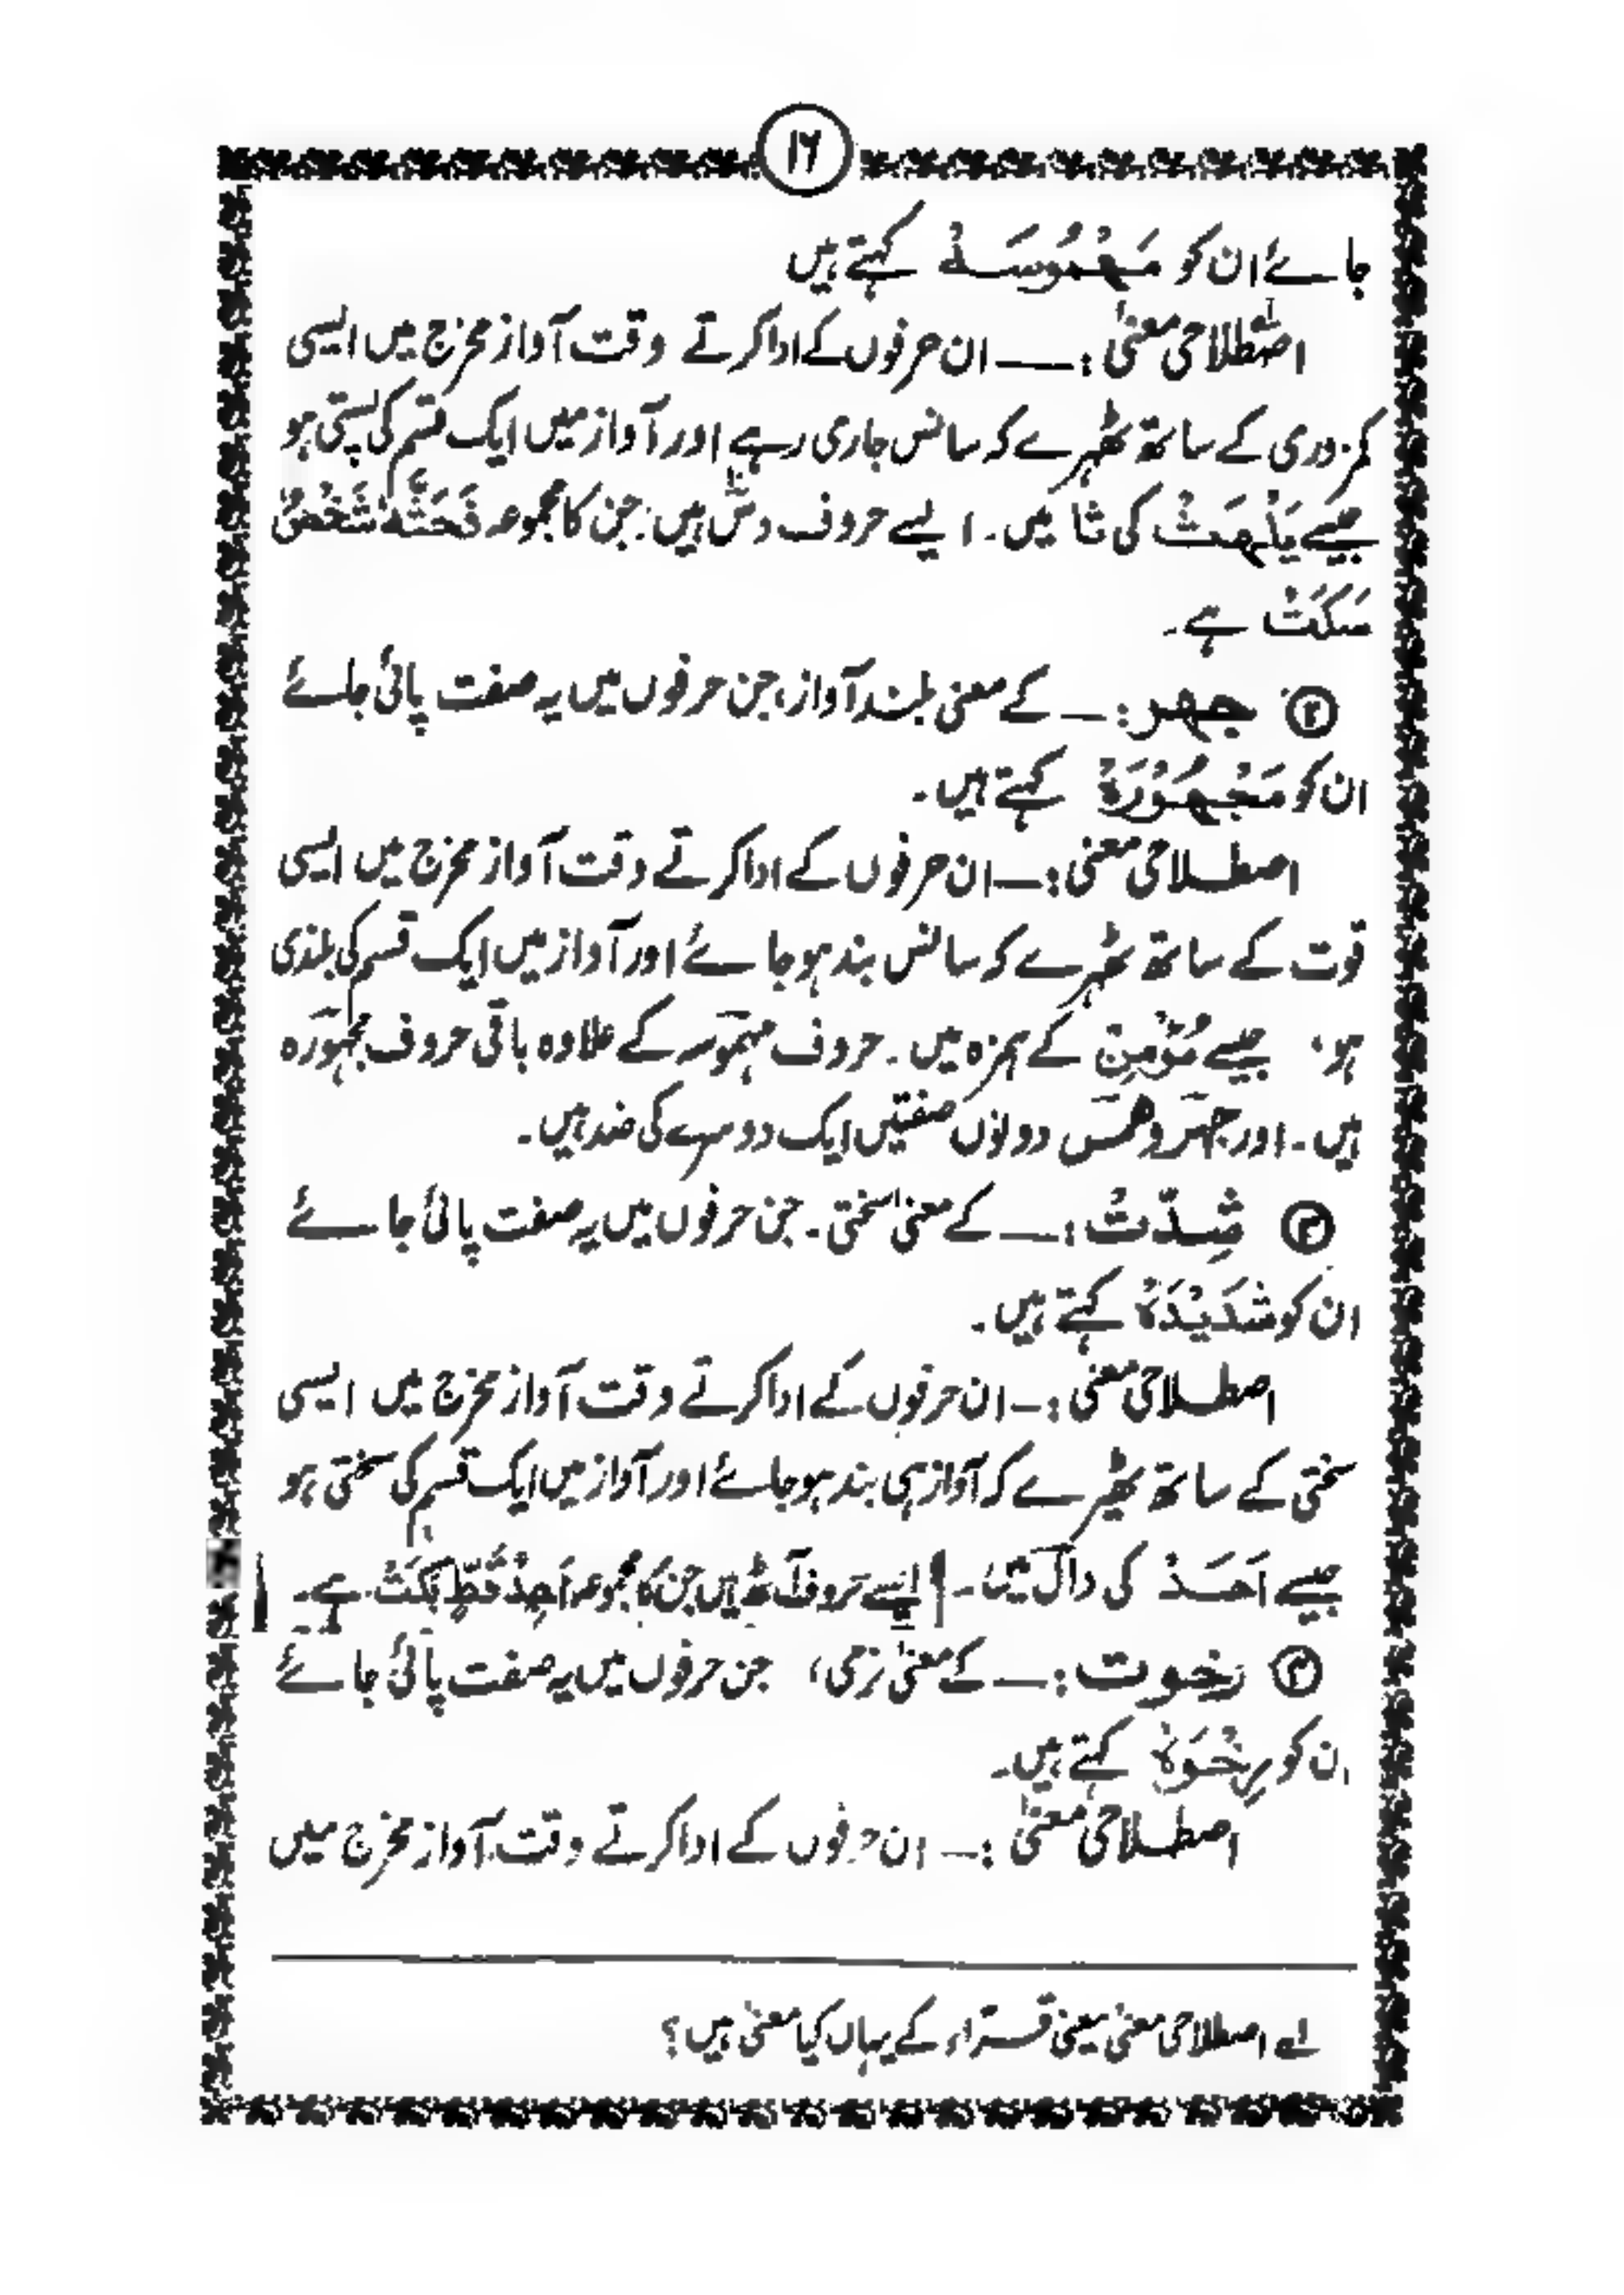 ۱۶
جائے ان کو مَہْمُوسَہْ کہتے ہیں
اصطلاحی معنیٰ :— ان حرفوں کے ادا کرتے وقت آواز مخرج میں ایسی
کمزوری کے ساتھ ٹھہرے کہ سانس جاری رہے اور آواز میں ایک قسم کی پستی ہو
جیسے یَلْہَثْ کی ثا میں۔ ایسے حروف دس ہیں: جن کا مجموعہ فَحَثَّہٗ شَخْصٌ
سَکَتْ ہے۔
② جہر :— کے معنی بلند آواز، جن حرفوں میں یہ صفت پائی جائے
ان کو مَجْہُوْرَہْ کہتے ہیں۔
اصطلاحی معنی :— ان حرفوں کے ادا کرتے وقت آواز مخرج میں ایسی
قوت کے ساتھ ٹھہرے کہ سانس بند ہو جائے اور آواز میں ایک قسم کی بلندی
ہو، جیسے مُؤْمِنْ کے ہمزہ میں۔ حروف مہموسہ کے علاوہ باقی حروف مجہورہ
ہیں۔ اور جہر و ہمس دونوں صفتیں ایک دوسرے کی ضد ہیں۔
③ شِدّتْ :— کے معنیٰ سختی۔ جن حرفوں میں یہ صفت پائی جائے
ان کو شَدِیْدَہْ کہتے ہیں۔
اصطلاحی معنی :— ان حرفوں کے ادا کرتے وقت آواز مخرج میں ایسی
سختی کے ساتھ ٹھہرے کہ آواز ہی بند ہو جائے اور آواز میں ایک قسم کی سختی ہو
جیسے اَحَدْ کی دال میں۔ ایسے حروف آٹھ ہیں جن کا مجموعہ اَجِدُ قَطٍّ بَکَتْ ہے۔
④ رخوت :— کے معنیٰ نرمی، جن حرفوں میں یہ صفت پائی جائے
ان کو رِخْوَہْ کہتے ہیں۔
اصطلاحی معنیٰ :— ان حرفوں کے ادا کرتے وقت آواز مخرج میں
لے اصطلاحی معنیٰ یعنی قراء کے یہاں کیا معنیٰ ہیں؟